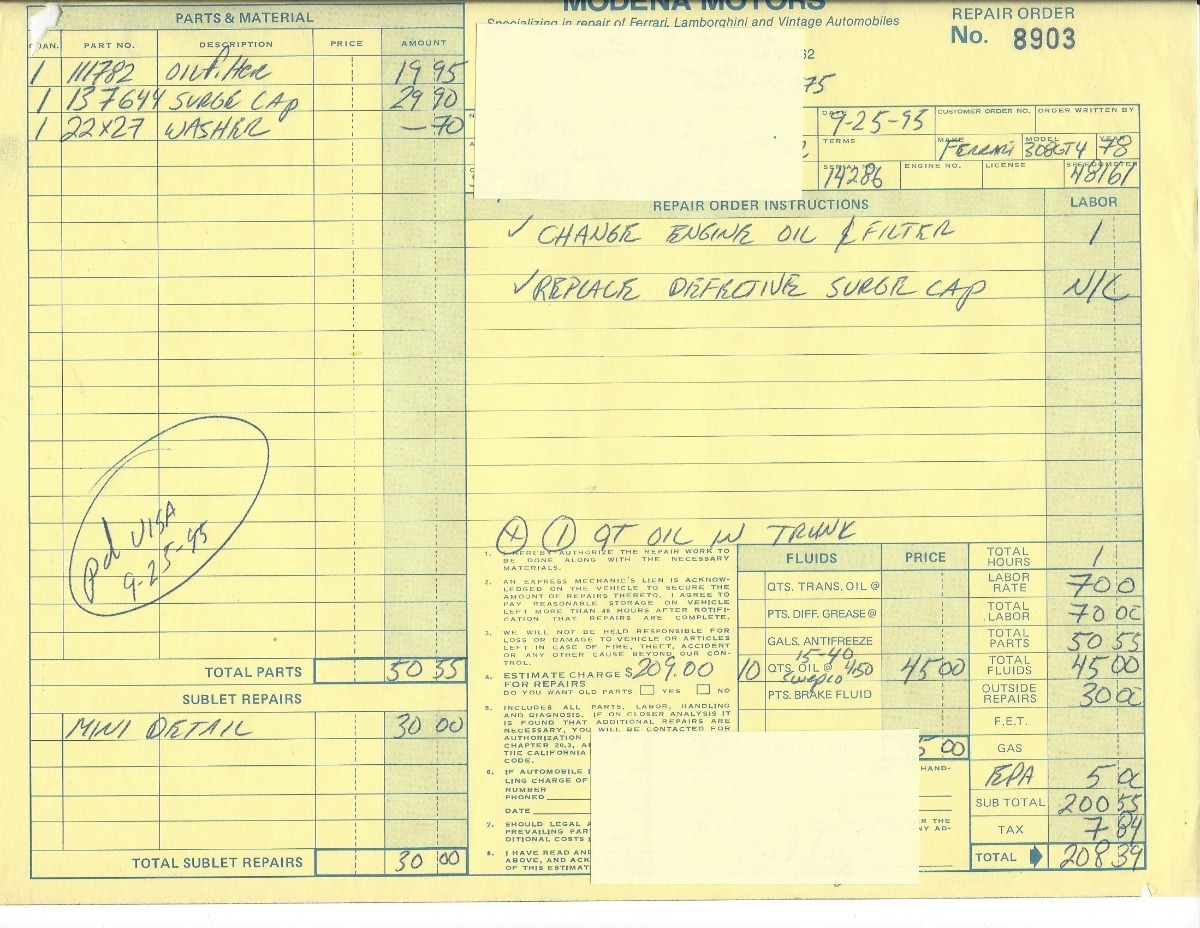 PARTS & MATERIAL
QUAN. PART NO. DESCRIPTION PRICE AMOUNT
1 111782 OIL filter 19 95
1 137644 SURGE CAP 29 90
1 22x27 WASHER —70
pd VISA
9-25-95
TOTAL PARTS 50 55
SUBLET REPAIRS
MINI DETAIL 30 00
TOTAL SUBLET REPAIRS 30 00
MODENA MOTORS
Specializing in repair of Ferrari, Lamborghini and Vintage Automobiles
62
75
REPAIR ORDER
No. 8903
DATE 9-25-95 CUSTOMER ORDER NO. ORDER WRITTEN BY
TERMS MAKE Ferrari MODEL 308GT4 YEAR 78
SERIAL NO. 14286 ENGINE NO. LICENSE SPEEDOMETER 48161
REPAIR ORDER INSTRUCTIONS LABOR
✓ CHANGE ENGINE OIL & FILTER 1
✓ REPLACE DEFECTIVE SURGE CAP N/C
(x) (1) QT OIL IN TRUNK
1. I HEREBY AUTHORIZE THE REPAIR WORK TO
BE DONE ALONG WITH THE NECESSARY
MATERIALS.
2. AN EXPRESS MECHANIC'S LIEN IS ACKNOW-
LEDGED ON THE VEHICLE TO SECURE THE
AMOUNT OF REPAIRS THERETO. I AGREE TO
PAY REASONABLE STORAGE ON VEHICLE
LEFT MORE THAN 48 HOURS AFTER NOTIFI-
CATION THAT REPAIRS ARE COMPLETE.
3. WE WILL NOT BE HELD RESPONSIBLE FOR
LOSS OR DAMAGE TO VEHICLE OR ARTICLES
LEFT IN CASE OF FIRE, THEFT, ACCIDENT
OR ANY OTHER CAUSE BEYOND OUR CON-
TROL.
4. ESTIMATE CHARGE $209.00
FOR REPAIRS
DO YOU WANT OLD PARTS YES NO
5. INCLUDES ALL PARTS, LABOR, HANDLING
AND DIAGNOSIS. IF ON CLOSER ANALYSIS IT
IS FOUND THAT ADDITIONAL REPAIRS ARE
NECESSARY, YOU WILL BE CONTACTED FOR
AUTHORIZATION
CHAPTER 20.3, A
THE CALIFORNIA
CODE.
6. IF AUTOMOBILE
LING CHARGE OF HAND-
NUMBER
PHONED
DATE
7. SHOULD LEGAL A R THE
PREVAILING PAR NY AD-
DITIONAL COSTS
8. I HAVE READ AND
ABOVE, AND ACK
OF THIS ESTIMAT
FLUIDS PRICE
QTS. TRANS. OIL @
PTS. DIFF. GREASE @
GALS. ANTIFREEZE
15-40
10 QTS. OIL @ 4.50 45 00
Swepco
PTS. BRAKE FLUID
5 00
TOTAL HOURS 1
LABOR RATE 70 0
TOTAL LABOR 70 00
TOTAL PARTS 50 55
TOTAL FLUIDS 45 00
OUTSIDE REPAIRS 30 00
F.E.T.
GAS
EPA 5 00
SUB TOTAL 200 55
TAX 7 84
TOTAL 208 39